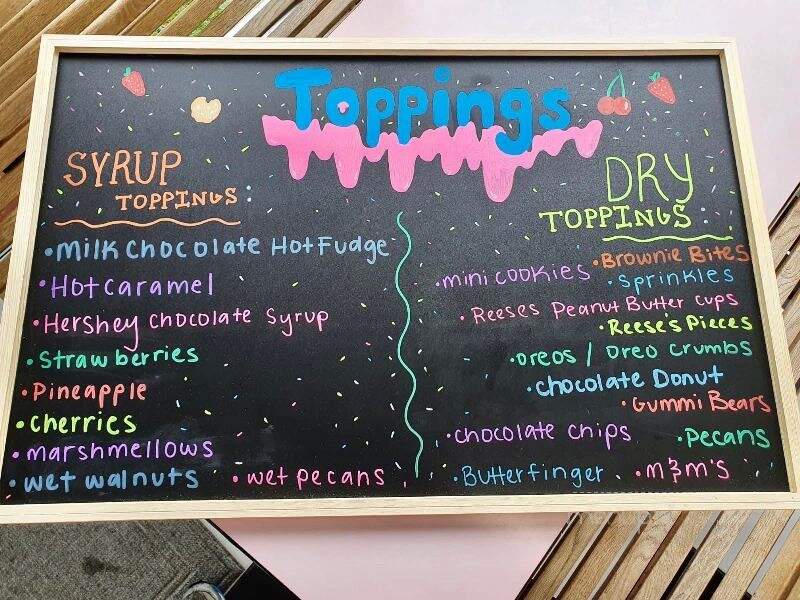 Toppings
SYRUP
TOPPINGS:
•Milk Chocolate Hot Fudge
•Hot caramel
•Hershey chocolate Syrup
•Strawberries
•Pineapple
•Cherries
•marshmellows
•wet walnuts •wet pecans
DRY
TOPPINGS:
•Brownie Bites
•mini cookies •Sprinkles
•Reeses Peanut Butter cups
•Reese's Pieces
•oreos / oreo crumbs
•chocolate Donut
•Gummi Bears
•chocolate chips •Pecans
•Butterfinger •M&M's